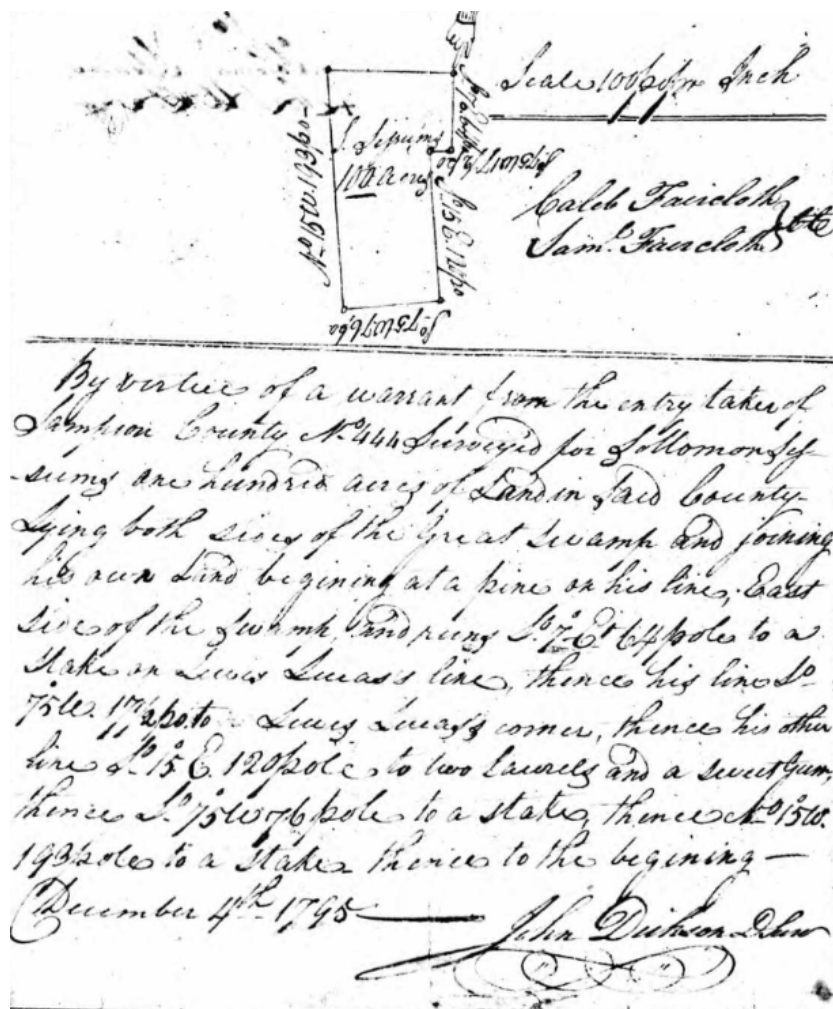 Scale 100 po pr Inch
So 7 E 64 po
So 75 W 17 1/2 po
S. Sessums
100 Acres
No 15 W 193 po
So 15 E. 120 po
So 75 W 76 po
Caleb Faircloth
Saml. Faircloth
By virtue of a warrant from the entry taker of
Sampson County No. 444 Surveyed for Sollomon Ses-
-sums one hundred acres of Land in said County
Lying both sides of the Great Swamp and joining
his own Land begining at a pine on his line, East
side of the Swamp, and runs So. 7 Et. 64 pole to a
Stake on Lewis Lucas's line, thence his line So
75 W. 17 1/2 po. to Lewis Lucas's corner, thence his other
line So. 15 E. 120 pole to two Laurels and a sweet Gum,
thence So. 75 W 76 pole to a stake, thence No 15 W.
193 pole to a Stake thence to the begining —
December 4th. 1795 —
John Dickson D Surv